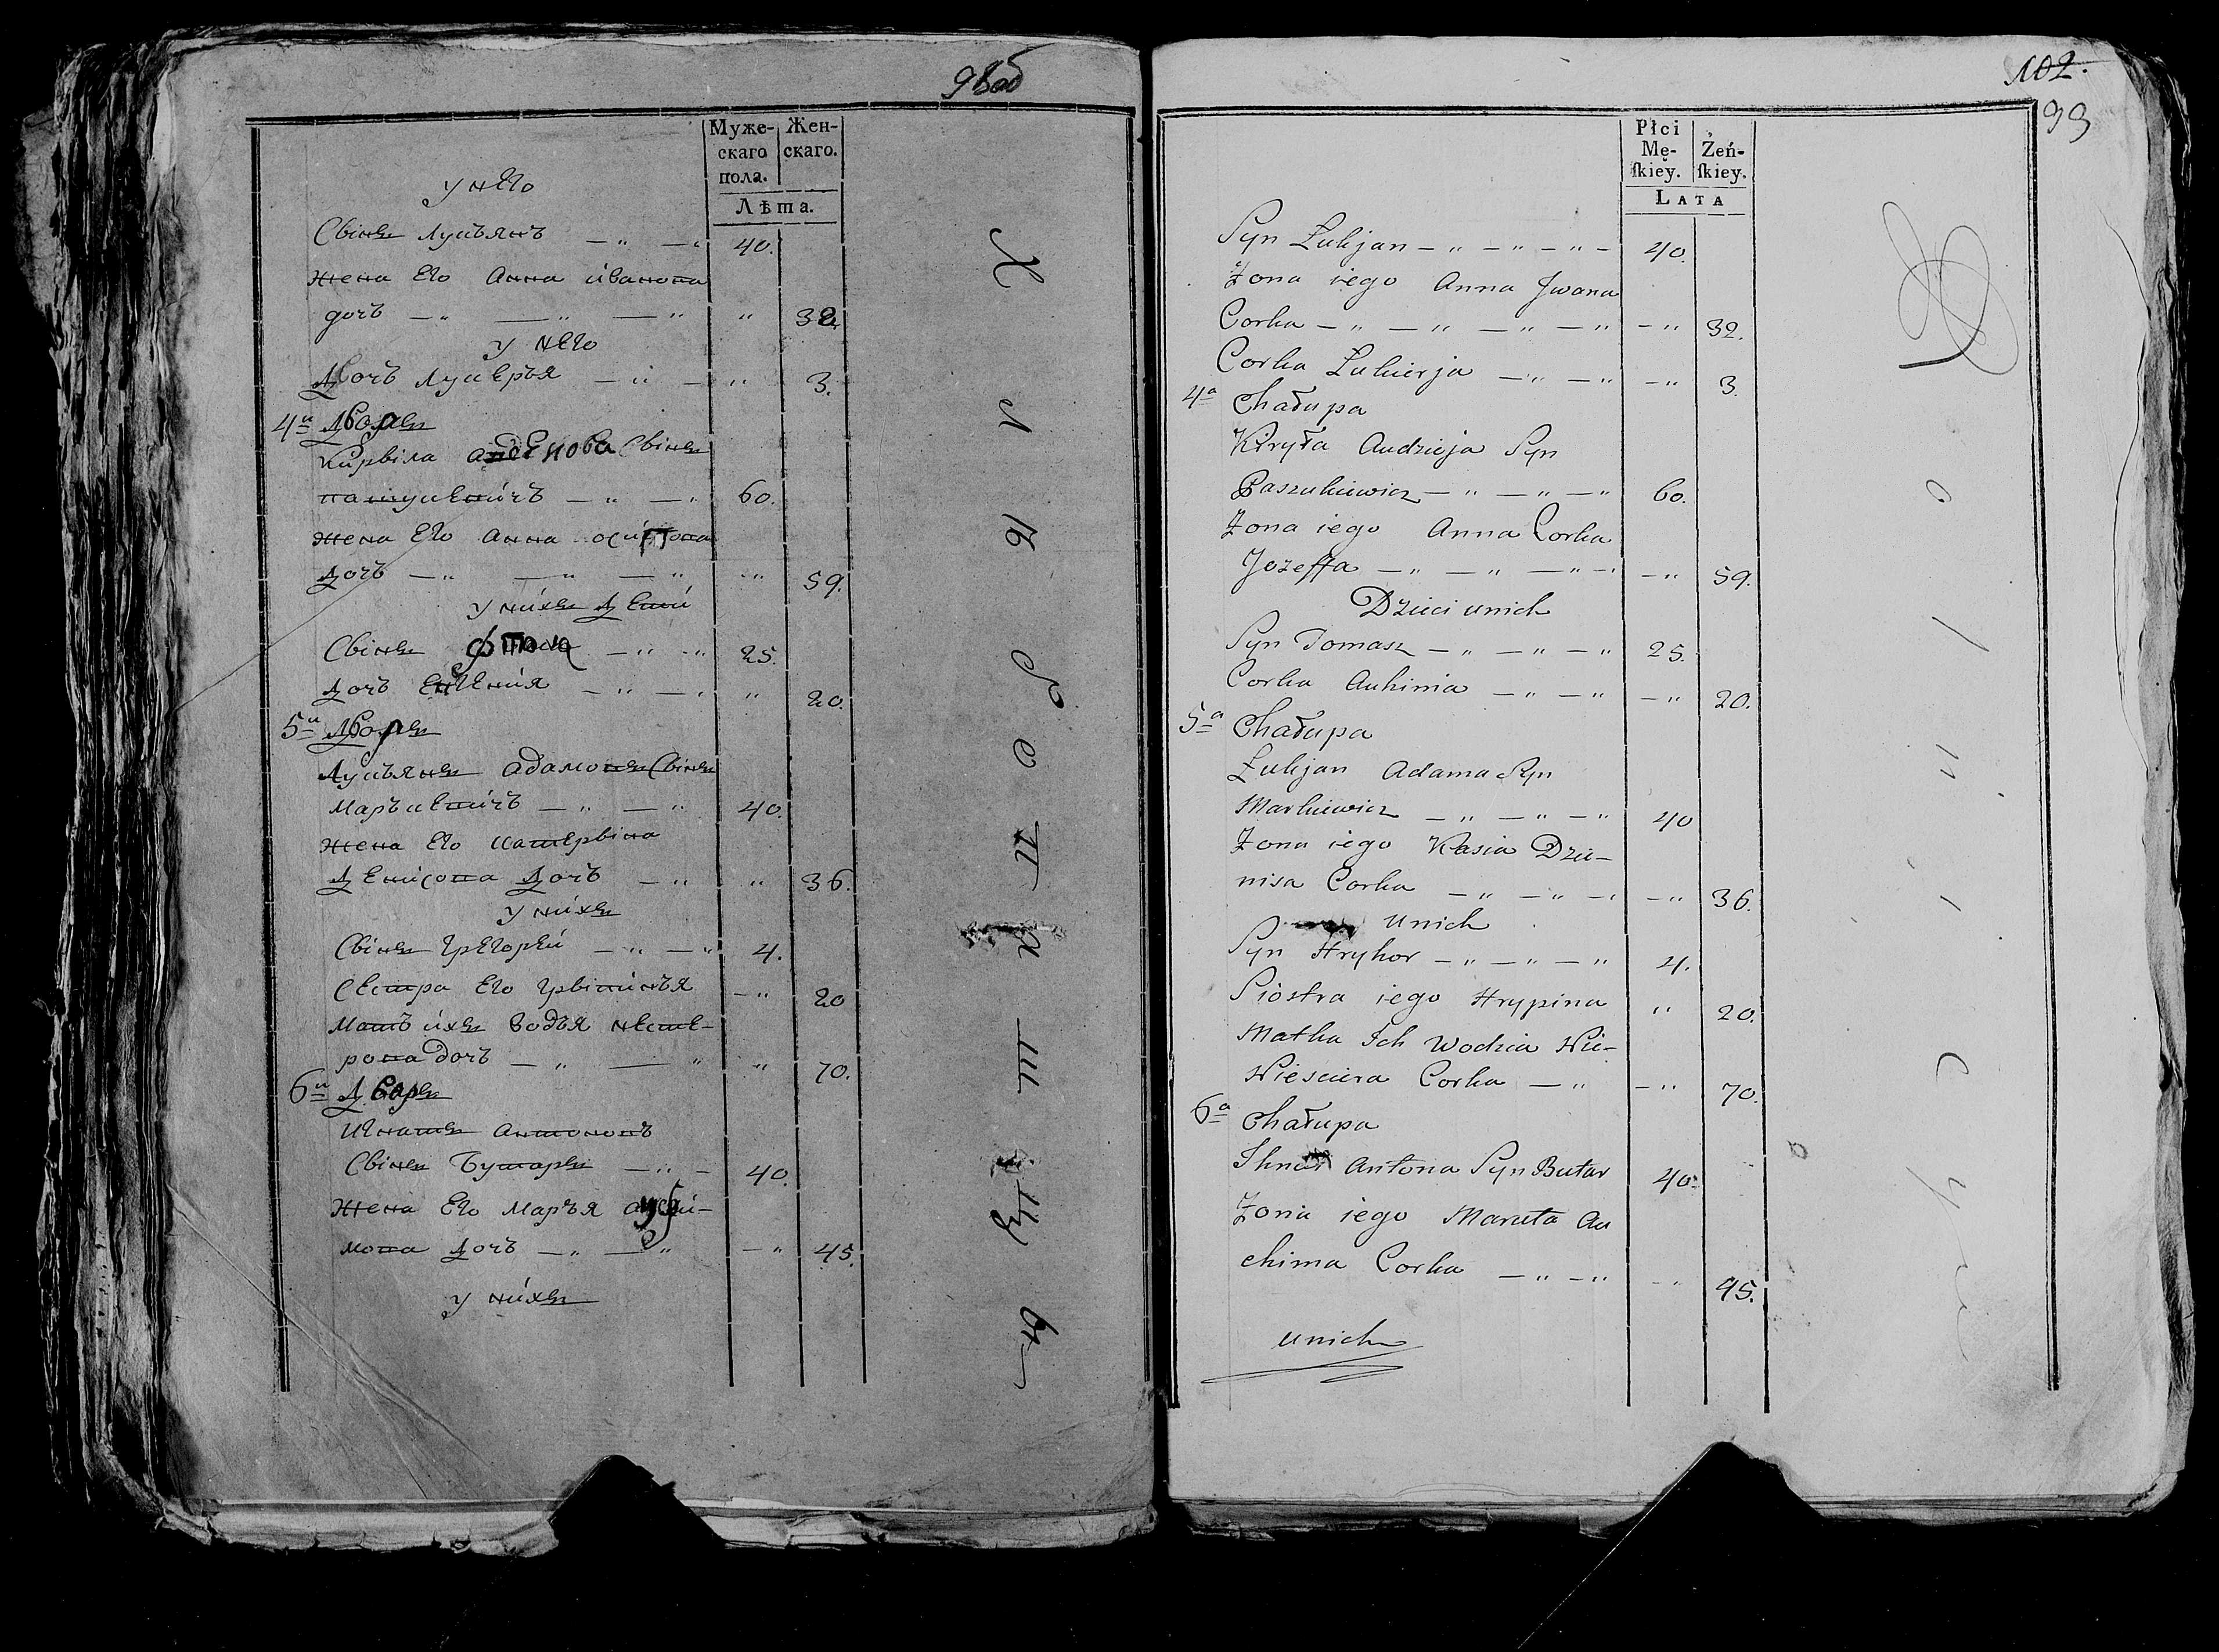 98 об
Муже-
скаго
пола.
Жен-
скаго.
Лѣта.
у него
Сынъ Лукьянъ 40.
жена его Анна иванова
дочь 32
у него
Дочь Лукерья 3.
4й Дворъ
Кирыла Сынъ
пашукевичъ 60.
жена его Анна осипова
дочь 59.
у нихъ дети
Сынъ Фтома 25.
дочь 20.
5й Дворъ
Лукьянъ адамовъ Сынъ
Марькевичъ 40.
жена его катерына
Денисова Дочь 36.
у нихъ
Сынъ Грегорей 4.
Сестра его Грыпинья 20
Мать ихъ Водья несте-
рова дочь 70.
6й Дворъ
игнатъ антоновъ
Сынъ Бутаръ 40.
жена его Марья
мова дочь 45.
у нихъ
102.
99
Płci
Mę-
ſkiey.
Żeń-
ſkiey.
LATA
Syn Łukjan 40.
Żona iego Anna Jwana
Corka 32.
Corka Łukierja 3.
4a Chałupa
Kiryła Andzieja Syn
Paszukiewicz 60.
Żona iego Anna Corka
Jozeffa 59.
Dzieci unich
Syn Tomasz 25.
Corka Auhinia 20.
5a Chałupa
Łukjan Adama Syn
Markiewicz 40
Żona iego Kasia Dzie-
nisa Corka 36.
unich
Syn Hryhor 4.
Siostra iego Hrypina 20.
Matka Ich Wodzia Nie-
Niesciera Corka 70.
6a Chałupa
Antona Syn Butar 40.
Żona iego Maruta Au
chima Corka 45.
unich